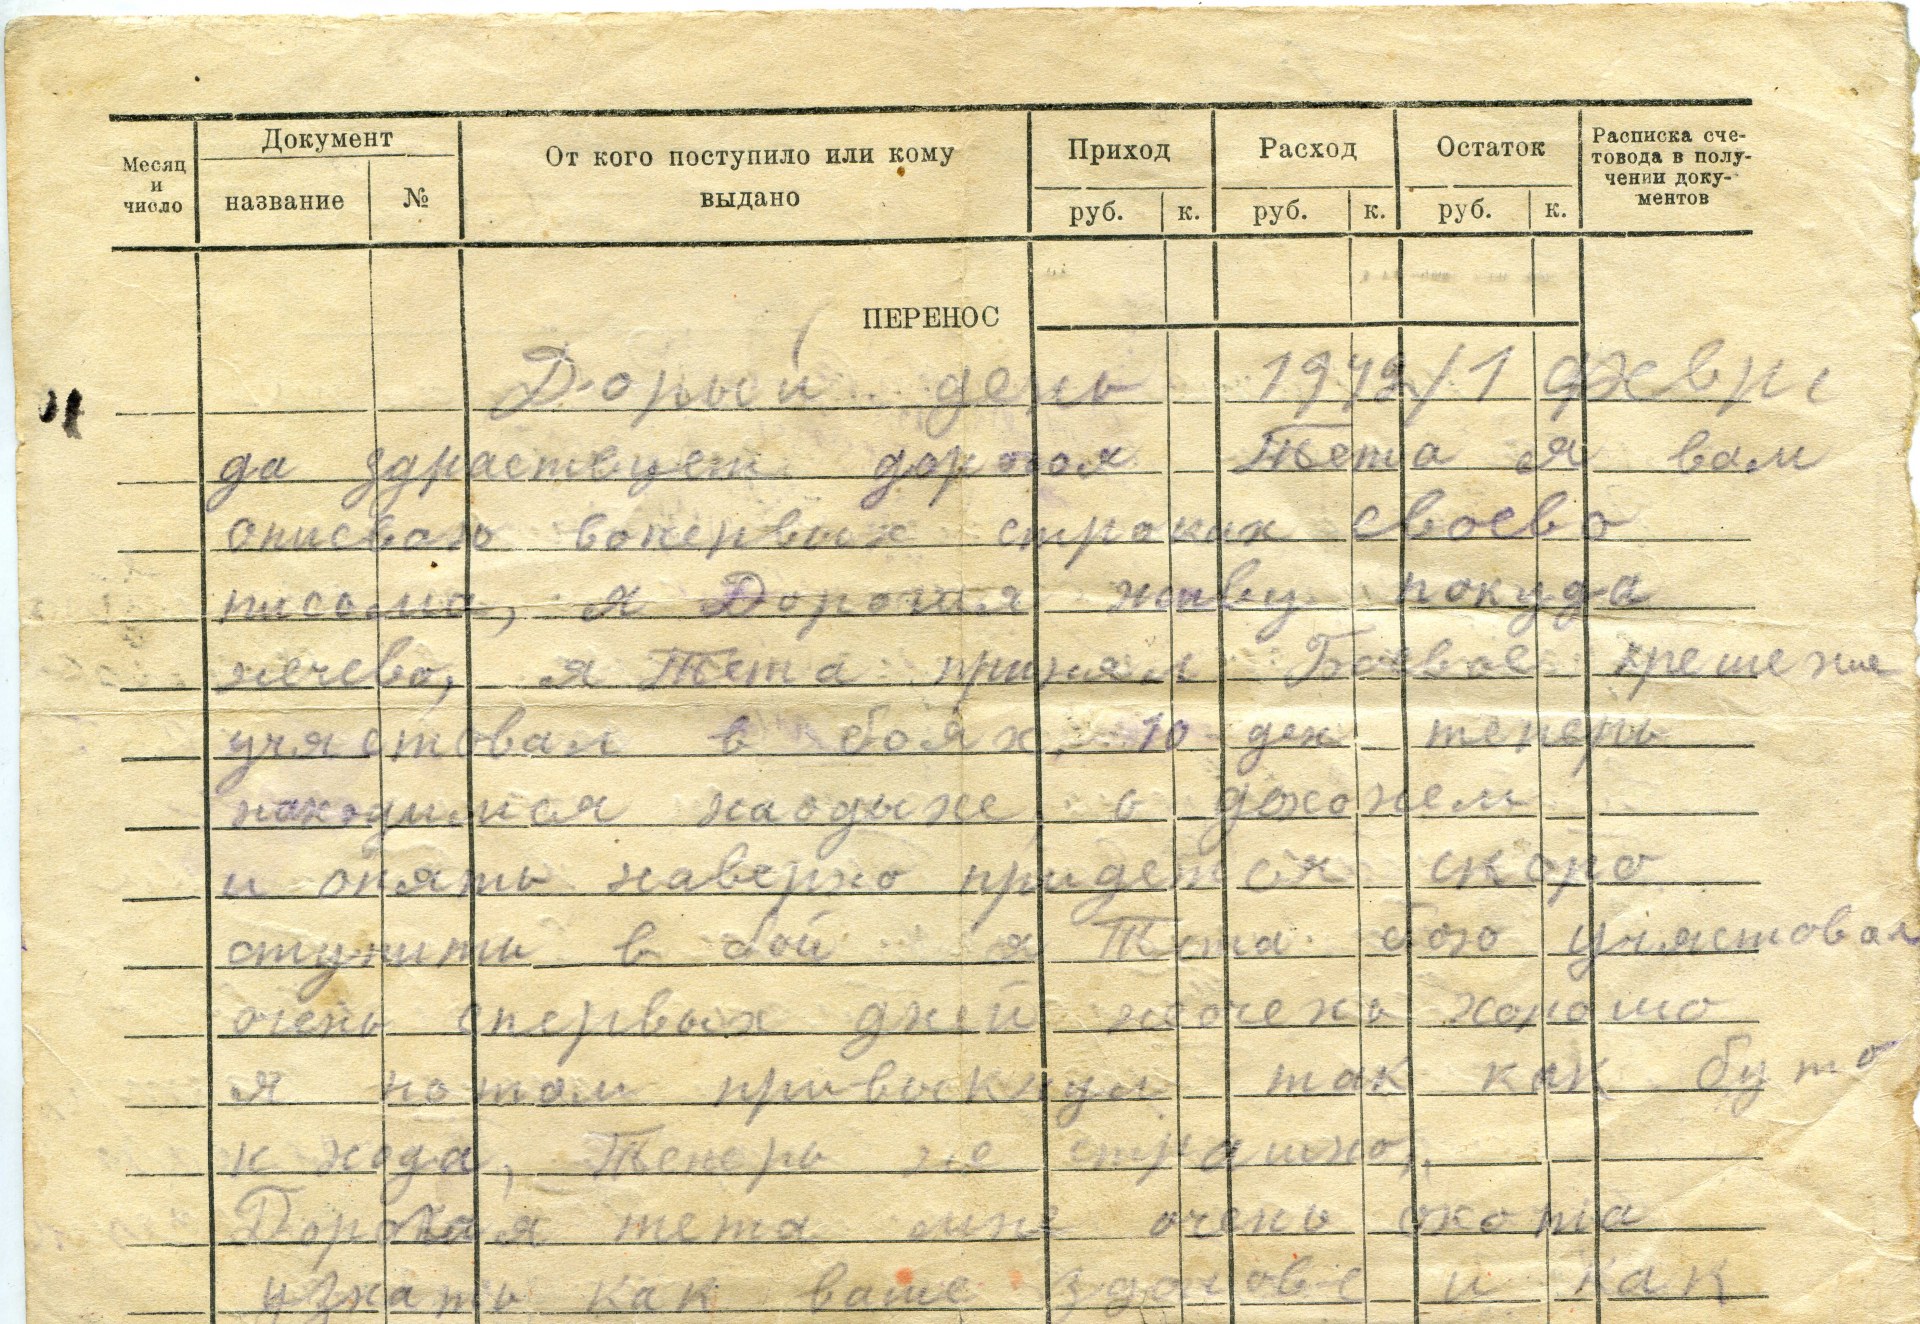 Месяц и число
Документ
название
№
От кого поступило или кому
выдано
Приход
руб. к.
Расход
руб. к.
Остаток
руб. к.
Расписка сче-
товода в полу-
чении доку-
ментов
ПЕРЕНОС
день 1942/1
да здраствует дорогая Тета я вам
описваю вопервых строках своево
писома, я Дорогая живу покуда
нечево, я Тета принял Боевое
учяствовал в боях, 10 ден теперь
находимся наодыхе в
и опять наверно придется скоро
ступить в бой я Тета бою учяствовал
очень спервых дней неочень хорошо
я потом привыкнул так как буто
к Теперь не страшно,
Дорогая тета мне очень охота
узнать как ваше здоовье и как